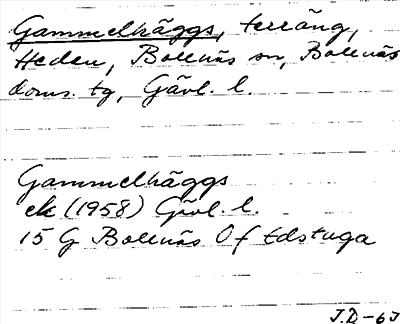 Gammelhäggs, terräng,
Heden, Bollnäs sn, Bollnäs
doms. tg, Gävl. l.
Gammelhäggs
ek (1958) Gävl. l.
15 G Bollnäs Of Edstuga
J.D-63